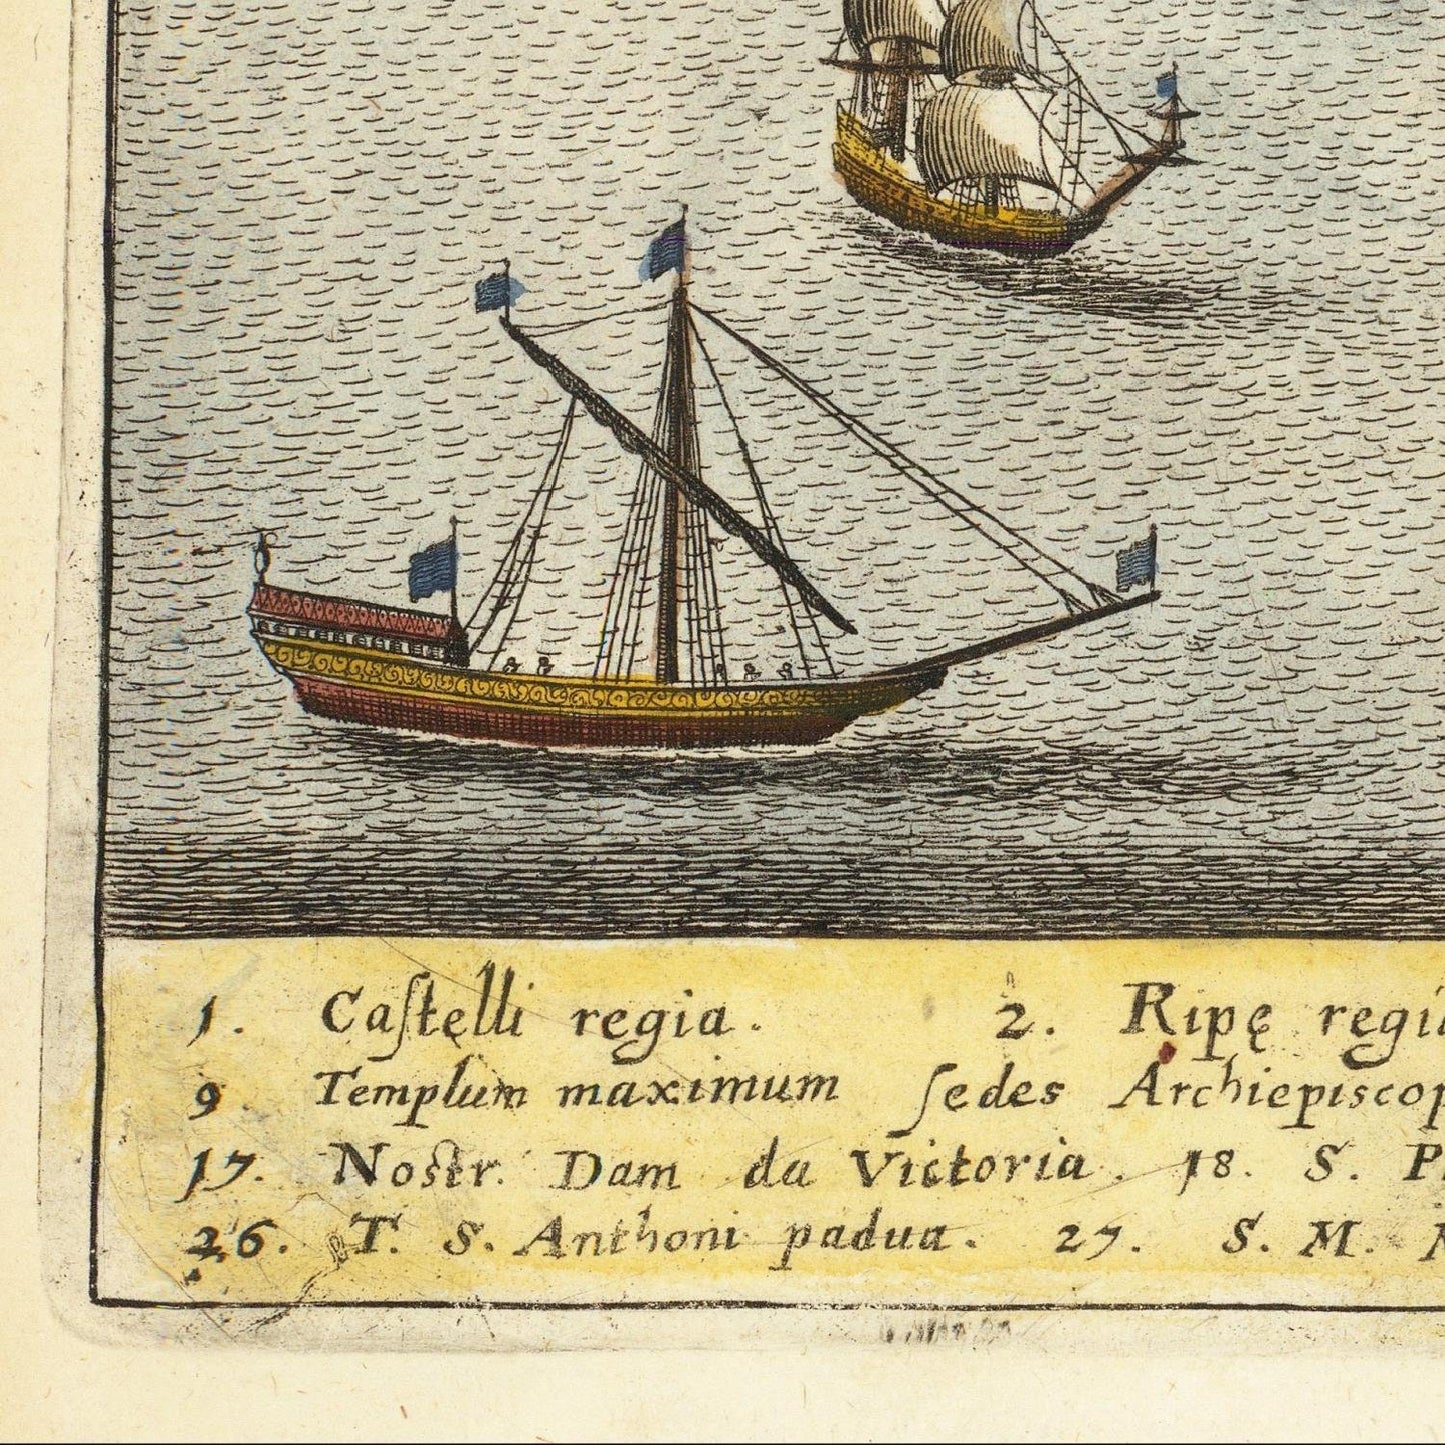 1. Caſtęlli regia. 2. Ripę regi
9 Templum maximum ſedes Archiepiscop
17. Nostr. Dam da Victoria. 18. S. P
26. T. S. Anthoni padua. 27. S. M.